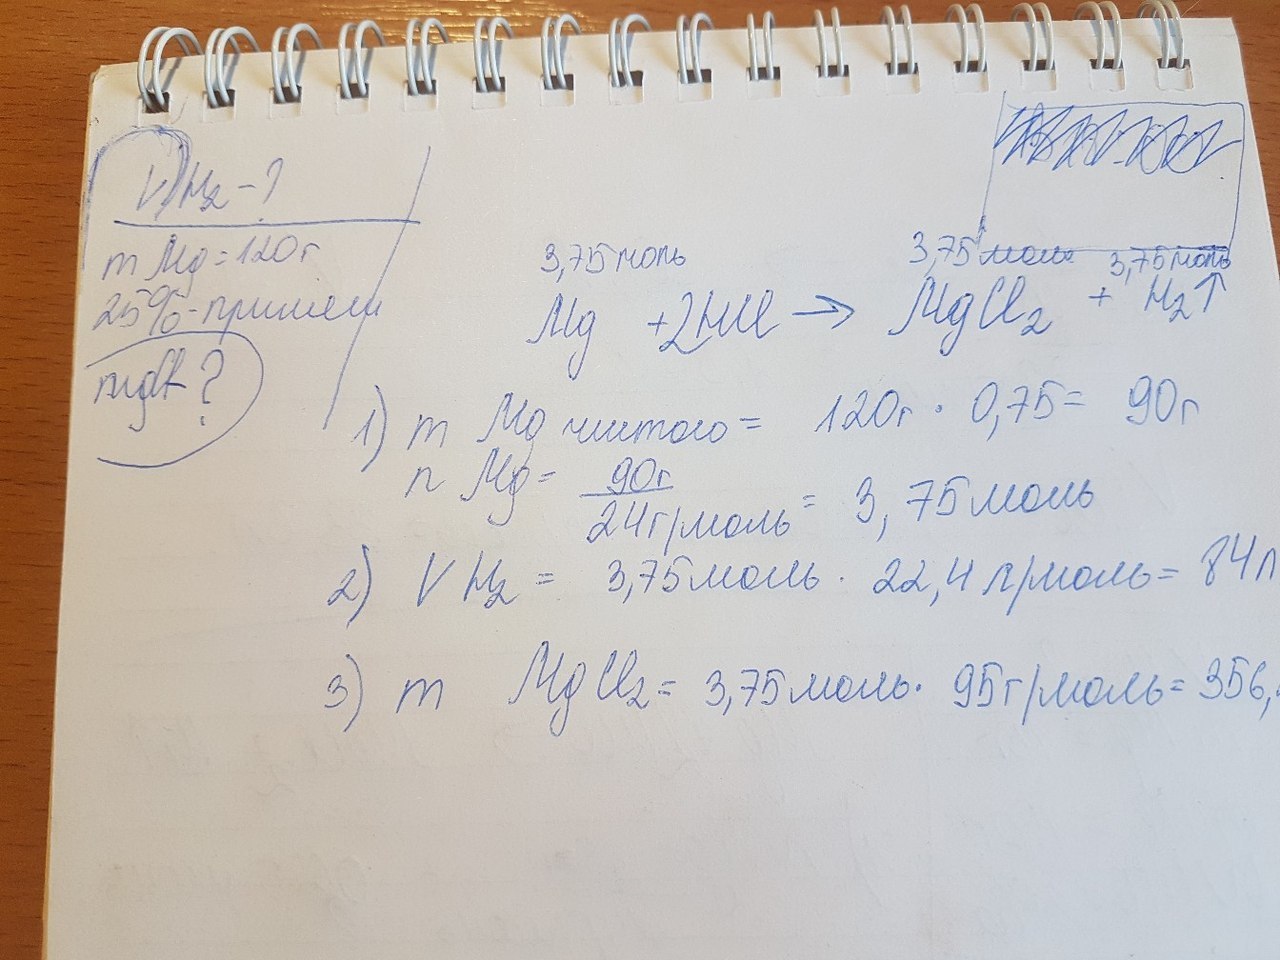 V H₂ - ?
m Mg = 120г
25% - примеси
3,75 моль 3,75 моль 3,75 моль
Mg + 2HCl → MgCl₂ + H₂↑
1) m Mg чистого = 120г · 0,75 = 90г
n Mg = 90г / 24г/моль = 3,75 моль
2) V H₂ = 3,75 моль · 22,4 л/моль = 84 л
3) m MgCl₂ = 3,75 моль · 95г/моль = 356,